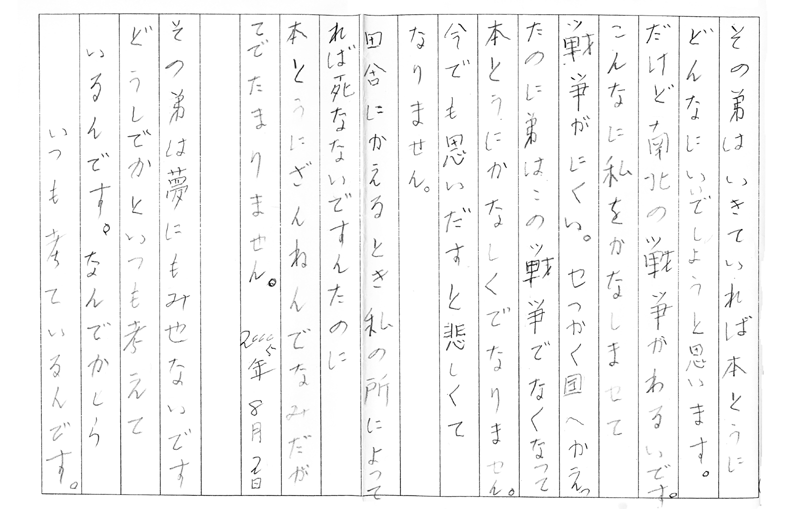 その弟はいきていれば本とうに
どんなにいいでしようと思います。
だけど南北の戦争がわるいです。
こんなに私をかなしませて
戦争がにくい。せつかく国へかえっ
たのに弟はこの戦争でなくなって
本とうにかなしくでなりません。
今でも思いだすと悲しくて
なりません。
田舎にかえるとき私の所によって
れば死なないですんたのに
本とうにざんねんでなみだが
てでたまりません。
2005年8月2日
その弟は夢にもみせないです
どうしでかといつも考えて
いるんです。なんでかしら
いつも考ているんです。